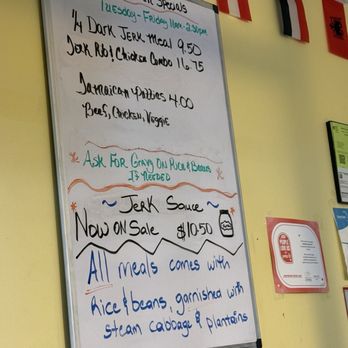 Specials
Tuesday - Friday 11am - 2:30pm
1/4 Dark Jerk Meal 9.50
Jerk Rib & Chicken Combo 16.75
Jamaican Patties 4.00
Beef, Chicken, Veggie
Ask For Gravy On Rice & Beans
If Needed
~ Jerk Sauce ~
Now On Sale $10.50
All meals comes with
Rice & beans, garnished with
steam cabbage & plantains